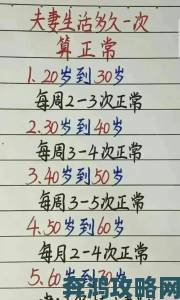 夫妻生活多久一次
算正常
1.20岁到30岁
每周2-3次正常
2.30岁到40岁
每周3-4次正常
3.40岁到50岁
每周3-5次正常
4.50岁到60岁
每月2-4次正常
5.60岁到70岁
奔鸿攻略网